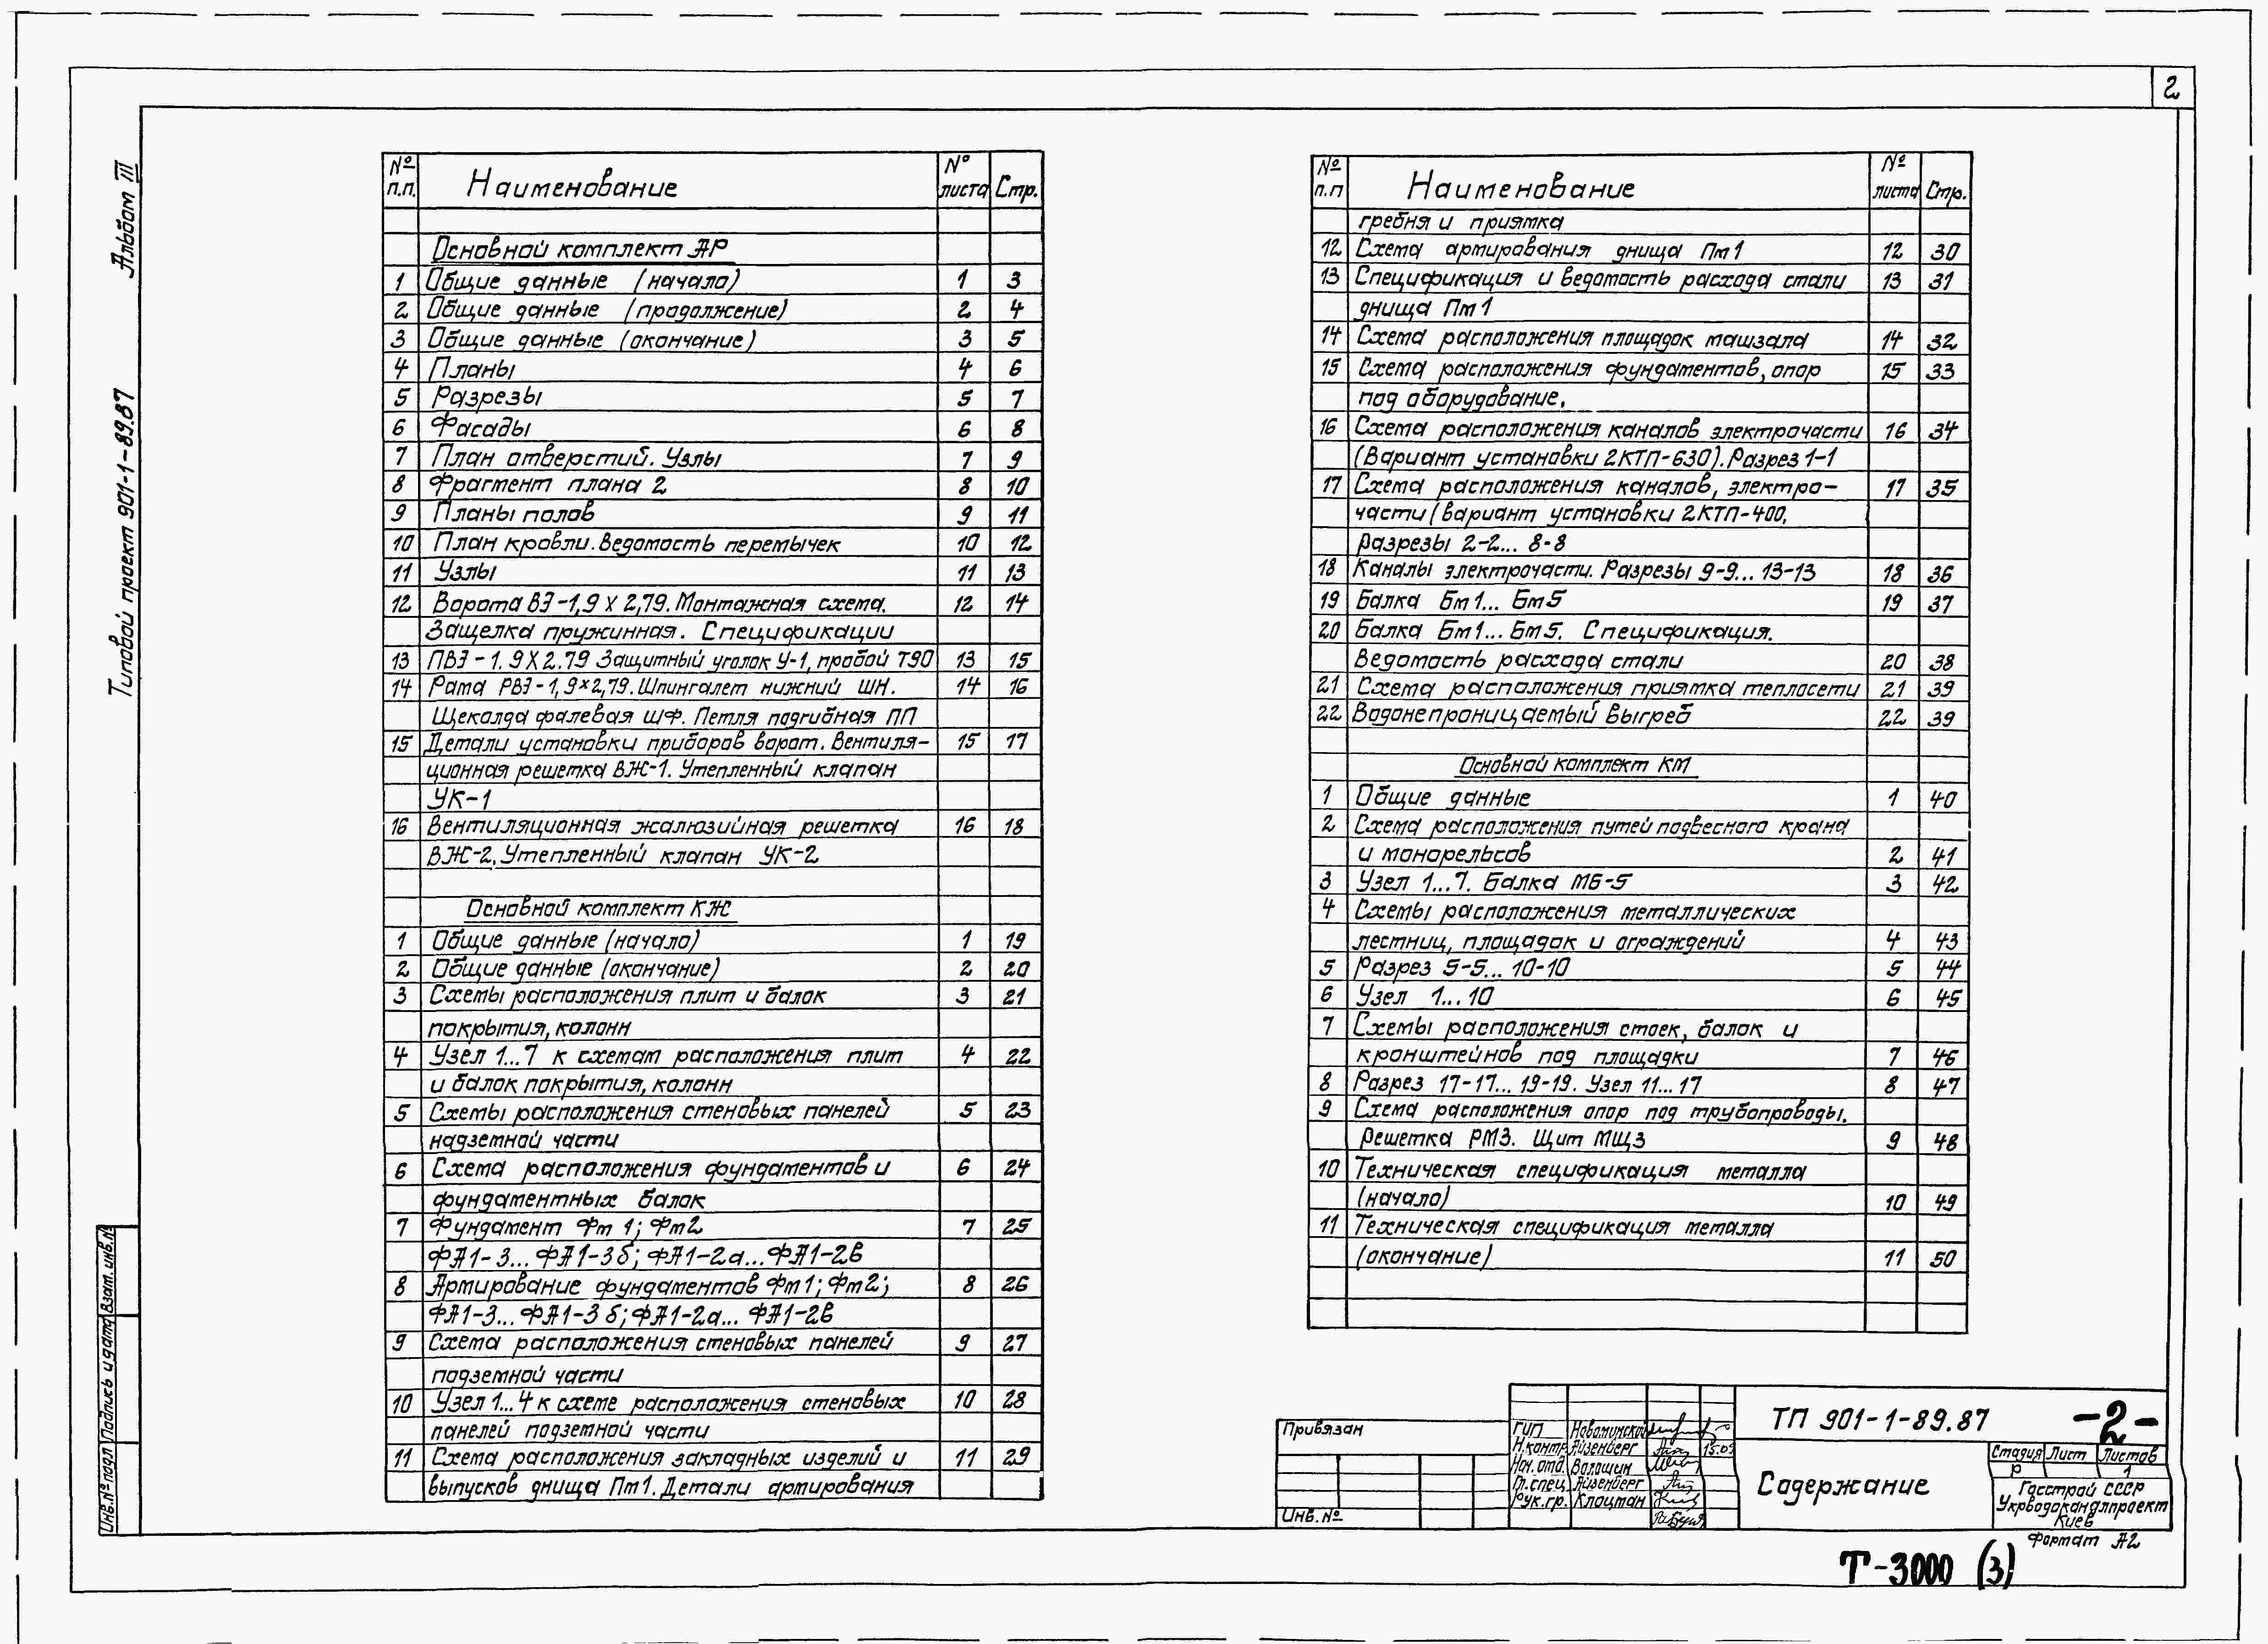 2
Альбом III
Типовой проект 901-1-89.87
№ п.п. Наименование № листа Стр.
Основной комплект АР
1 Общие данные (начало) 1 3
2 Общие данные (продолжение) 2 4
3 Общие данные (окончание) 3 5
4 Планы 4 6
5 Разрезы 5 7
6 Фасады 6 8
7 План отверстий. Узлы 7 9
8 Фрагмент плана 2 8 10
9 Планы полов 9 11
10 План кровли. Ведомость перемычек 10 12
11 Узлы 11 13
12 Ворота ВЭ-1,9 х 2,79. Монтажная схема. 12 14
Защелка пружинная. Спецификации
13 ПВЭ-1.9х2.79 Защитный уголок У-1, пробой Т90 13 15
14 Рама РВЭ-1,9×2,79. Шпингалет нижний ШН. 14 16
Щеколда фалевая ШФ. Петля подгибная ПП
15 Детали установки приборов ворот. Вентиля- 15 17
ционная решетка ВЖ-1. Утепленный клапан
УК-1
16 Вентиляционная жалюзийная решетка 16 18
ВЖ-2. Утепленный клапан УК-2
Основной комплект КЖ
1 Общие данные (начало) 1 19
2 Общие данные (окончание) 2 20
3 Схемы расположения плит и балок 3 21
покрытия, колонн
4 Узел 1...7 к схемам расположения плит 4 22
и балок покрытия, колонн
5 Схемы расположения стеновых панелей 5 23
надземной части
6 Схема расположения фундаментов и 6 24
фундаментных балок
7 Фундамент Фм 1; Фм2 7 25
ФА1-3... ФА1-3б; ФА1-2а... ФА1-2в
8 Армирование фундаментов Фм1; Фм2; 8 26
ФА1-3... ФА1-3б; ФА1-2а... ФА1-2в
9 Схема расположения стеновых панелей 9 27
подземной части
10 Узел 1...4 к схеме расположения стеновых 10 28
панелей подземной части
11 Схема расположения закладных изделий и 11 29
выпусков днища Пм1. Детали армирования
№ п.п Наименование № листа Стр.
гребня и приямка
12 Схема армирования днища Пм1 12 30
13 Спецификация и ведомость расхода стали 13 31
днища Пм1
14 Схема расположения площадок машзала 14 32
15 Схема расположения фундаментов, опор 15 33
под оборудование.
16 Схема расположения каналов электрочасти 16 34
(Вариант установки 2КТП-630). Разрез 1-1
17 Схема расположения каналов, электро- 17 35
части (вариант установки 2КТП-400,
Разрезы 2-2... 8-8
18 Каналы электрочасти. Разрезы 9-9... 13-13 18 36
19 Балка Бм1... Бм5 19 37
20 Балка Бм1... Бм5. Спецификация.
Ведомость расхода стали 20 38
21 Схема расположения приямка теплосети 21 39
22 Водонепроницаемый выгреб 22 39
Основной комплект КМ
1 Общие данные 1 40
2 Схема расположения путей подвесного крана
и монорельсов 2 41
3 Узел 1...7. Балка МБ-5 3 42
4 Схемы расположения металлических
лестниц, площадок и ограждений 4 43
5 Разрез 5-5... 10-10 5 44
6 Узел 1...10 6 45
7 Схемы расположения стоек, балок и
кронштейнов под площадки 7 46
8 Разрез 17-17... 19-19. Узел 11...17 8 47
9 Схема расположения опор под трубопроводы.
Решетка РМ3. Щит МЩ3 9 48
10 Техническая спецификация металла
(начало) 10 49
11 Техническая спецификация металла
(окончание) 11 50
Инв.№ подл Подпись и дата Взат. инв.№
Привязан
Инв.№
ГИП Новоминской
Н.контр. Айзенберг 15.09
Нач.отд. Волошин
Гл.спец. Айзенберг
Рук.гр. Клоцман
ТП 901-1-89.87 -2-
Содержание
Стадия Лист Листов
Р 1
Госстрой СССР
Укрводоканалпроект
Киев
Формат А2
Т-3000 (3)